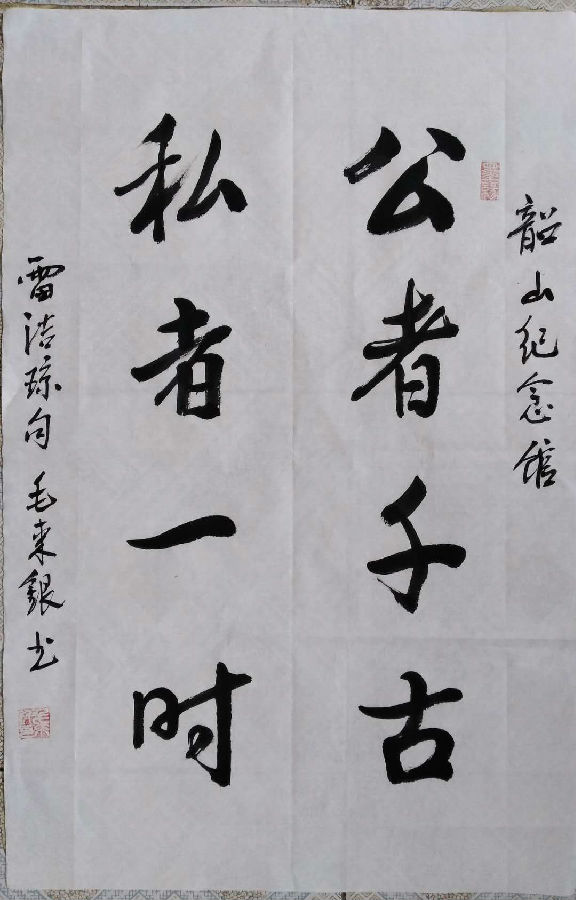 韶山纪念馆
公者千古
私者一时
雷洁琼句 毛来銀书